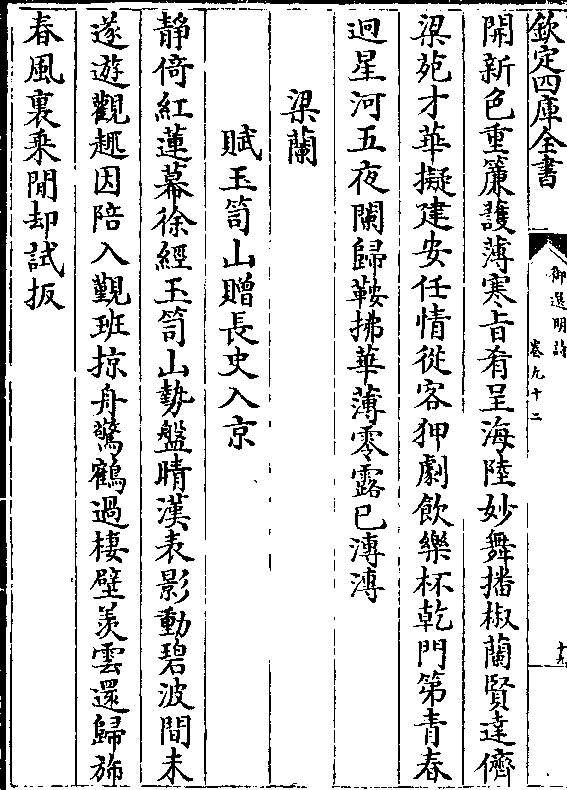 欽定四庫全書
御選明詩
卷九十二
十九
開新色重簾護薄寒旨肴呈海陸妙舞播椒蘭賢達儕
梁苑才華擬建安任情從客狎劇飲樂杯乾門第青春
迥星河五夜闌歸鞍拂華薄零露已漙漙
梁蘭
賦玉笥山贈長史入京
靜倚紅蓮幕徐經玉笥山勢盤晴漢表影動碧波間未
遂遊觀趣因陪入覲班掠舟驚鶴過棲壁羨雲還歸旆
春風裏乘閒却試扳